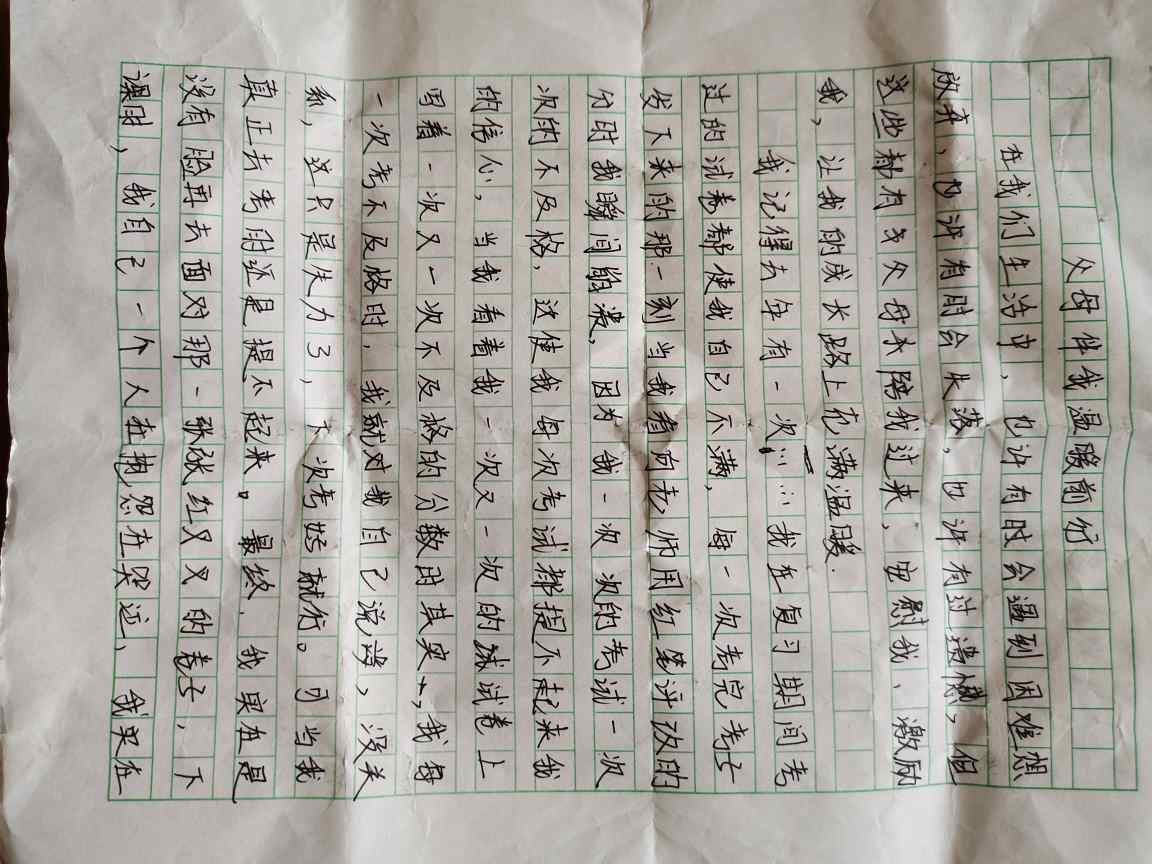 父母伴我温暖前行
在我们生活中，也许有时会遇到困难想
放弃，也许有时会失落，也许有过遗憾，但
这些都有我父母来陪我过来，安慰我、激励
我，让我的成长路上充满温暖.
我记得去年有一次……我在复习期间考
过的试卷都使我自己不满，每一次考完卷子
发下来的那一刻当我看向老师用红笔评改的
分时我瞬间崩溃，因为我一次次的考试一次
次的不及格，这使我每次考试都提不起来我
的信心，当我看着我一次又一次的试卷上
写着一次又一次不及格的分数时其实，我每
一次考不及格时，我就对我自己说尚，没关
系，这只是失力了，下次考好就行。可当我
真正去考时还是提不起来。最终，我实在是
没有脸再去面对那一张张红叉叉的卷子，下
课时，我自己一个人在抱怨在哭泣，我实在